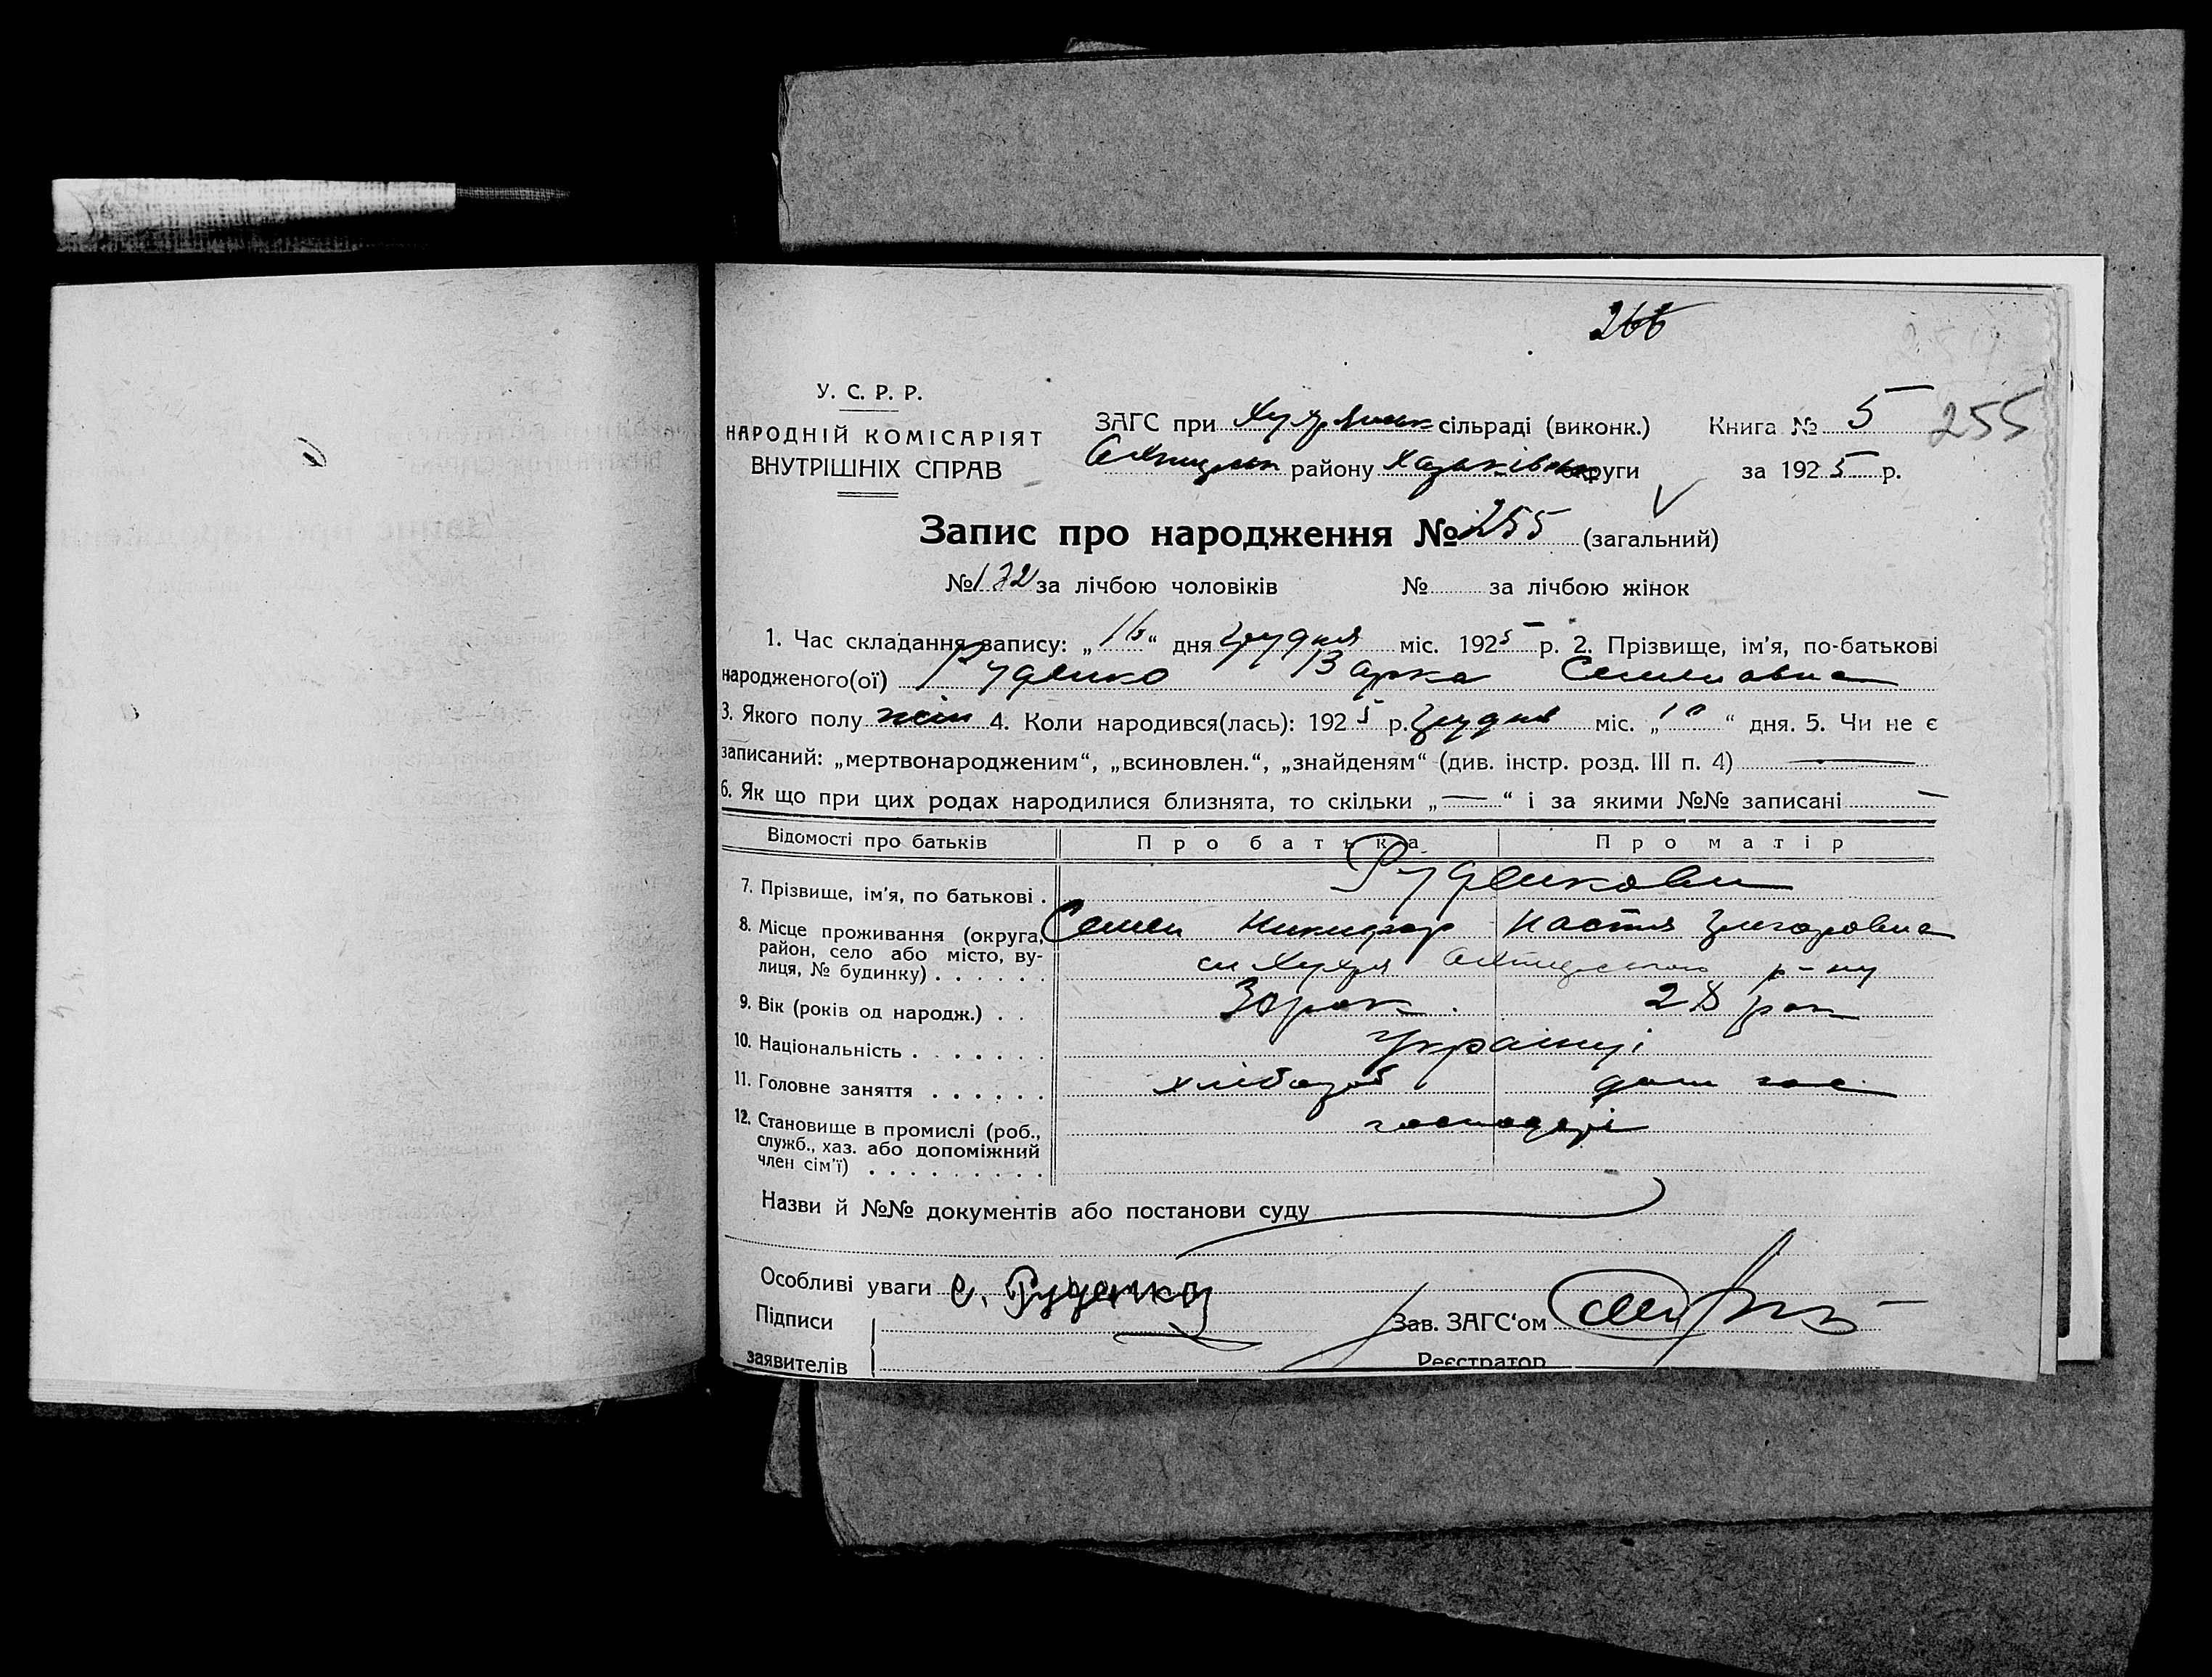 266
У. С. Р. Р.
НАРОДНІЙ КОМІСАРІЯТ
ВНУТРІШНІХ СПРАВ
ЗАГС при сільраді (виконк.)
району Харьківськ округи
Книга № 5 255
за 1925 р.
Запис про народження № 255 (загальний)
№ 132 за лічбою чоловіків № за лічбою жінок
1. Час складання запису: „16“ дня грудня міс. 1925 р. 2. Прізвище, ім'я, по-батькові
народженого(ої) Руденко Варка Семеновна
3. Якого полу жін 4. Коли народився(лась): 1925 р. грудня міс. „10“ дня. 5. Чи не є
записаний: „мертвонародженим“, „всиновлен.“, „знайденям“ (див. інстр. розд. III п. 4) —
6. Як що при цих родах народилися близнята, то скільки „—“ і за якими №№ записані —
Відомості про батьків Про батька Про матір
7. Прізвище, ім'я, по батькові . Руденкови
Семен Никифор Настя Григоровна
8. Місце проживання (округа,
район, село або місто, ву-
лиця, № будинку) . . . . . с Хухря р-ну
9. Вік (років од народж.) . . 30 рок 28 рок
10. Національність . . . . . . . Українці
11. Головне заняття . . . . . . хлібороб дом гос
12. Становище в промислі (роб.,
служб., хаз. або допоміжний
член сім'ї) . . . . . . . . . господарі
Назви й №№ документів або постанови суду
Особливі уваги с. Руденко
Підписи
заявителів
Зав. ЗАГС'ом
Реєстратор